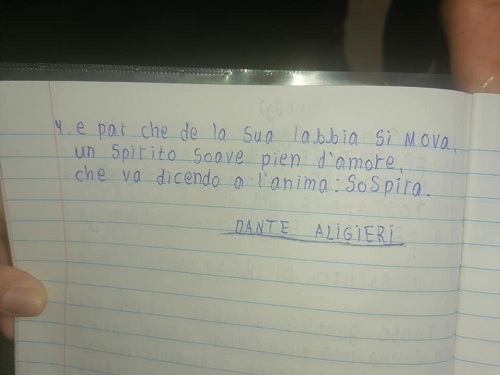 4. e par che de la sua labbia si mova,
un spirito soave pien d'amore,
che va dicendo a l'anima: SoSpira.
DANTE ALIGIERI